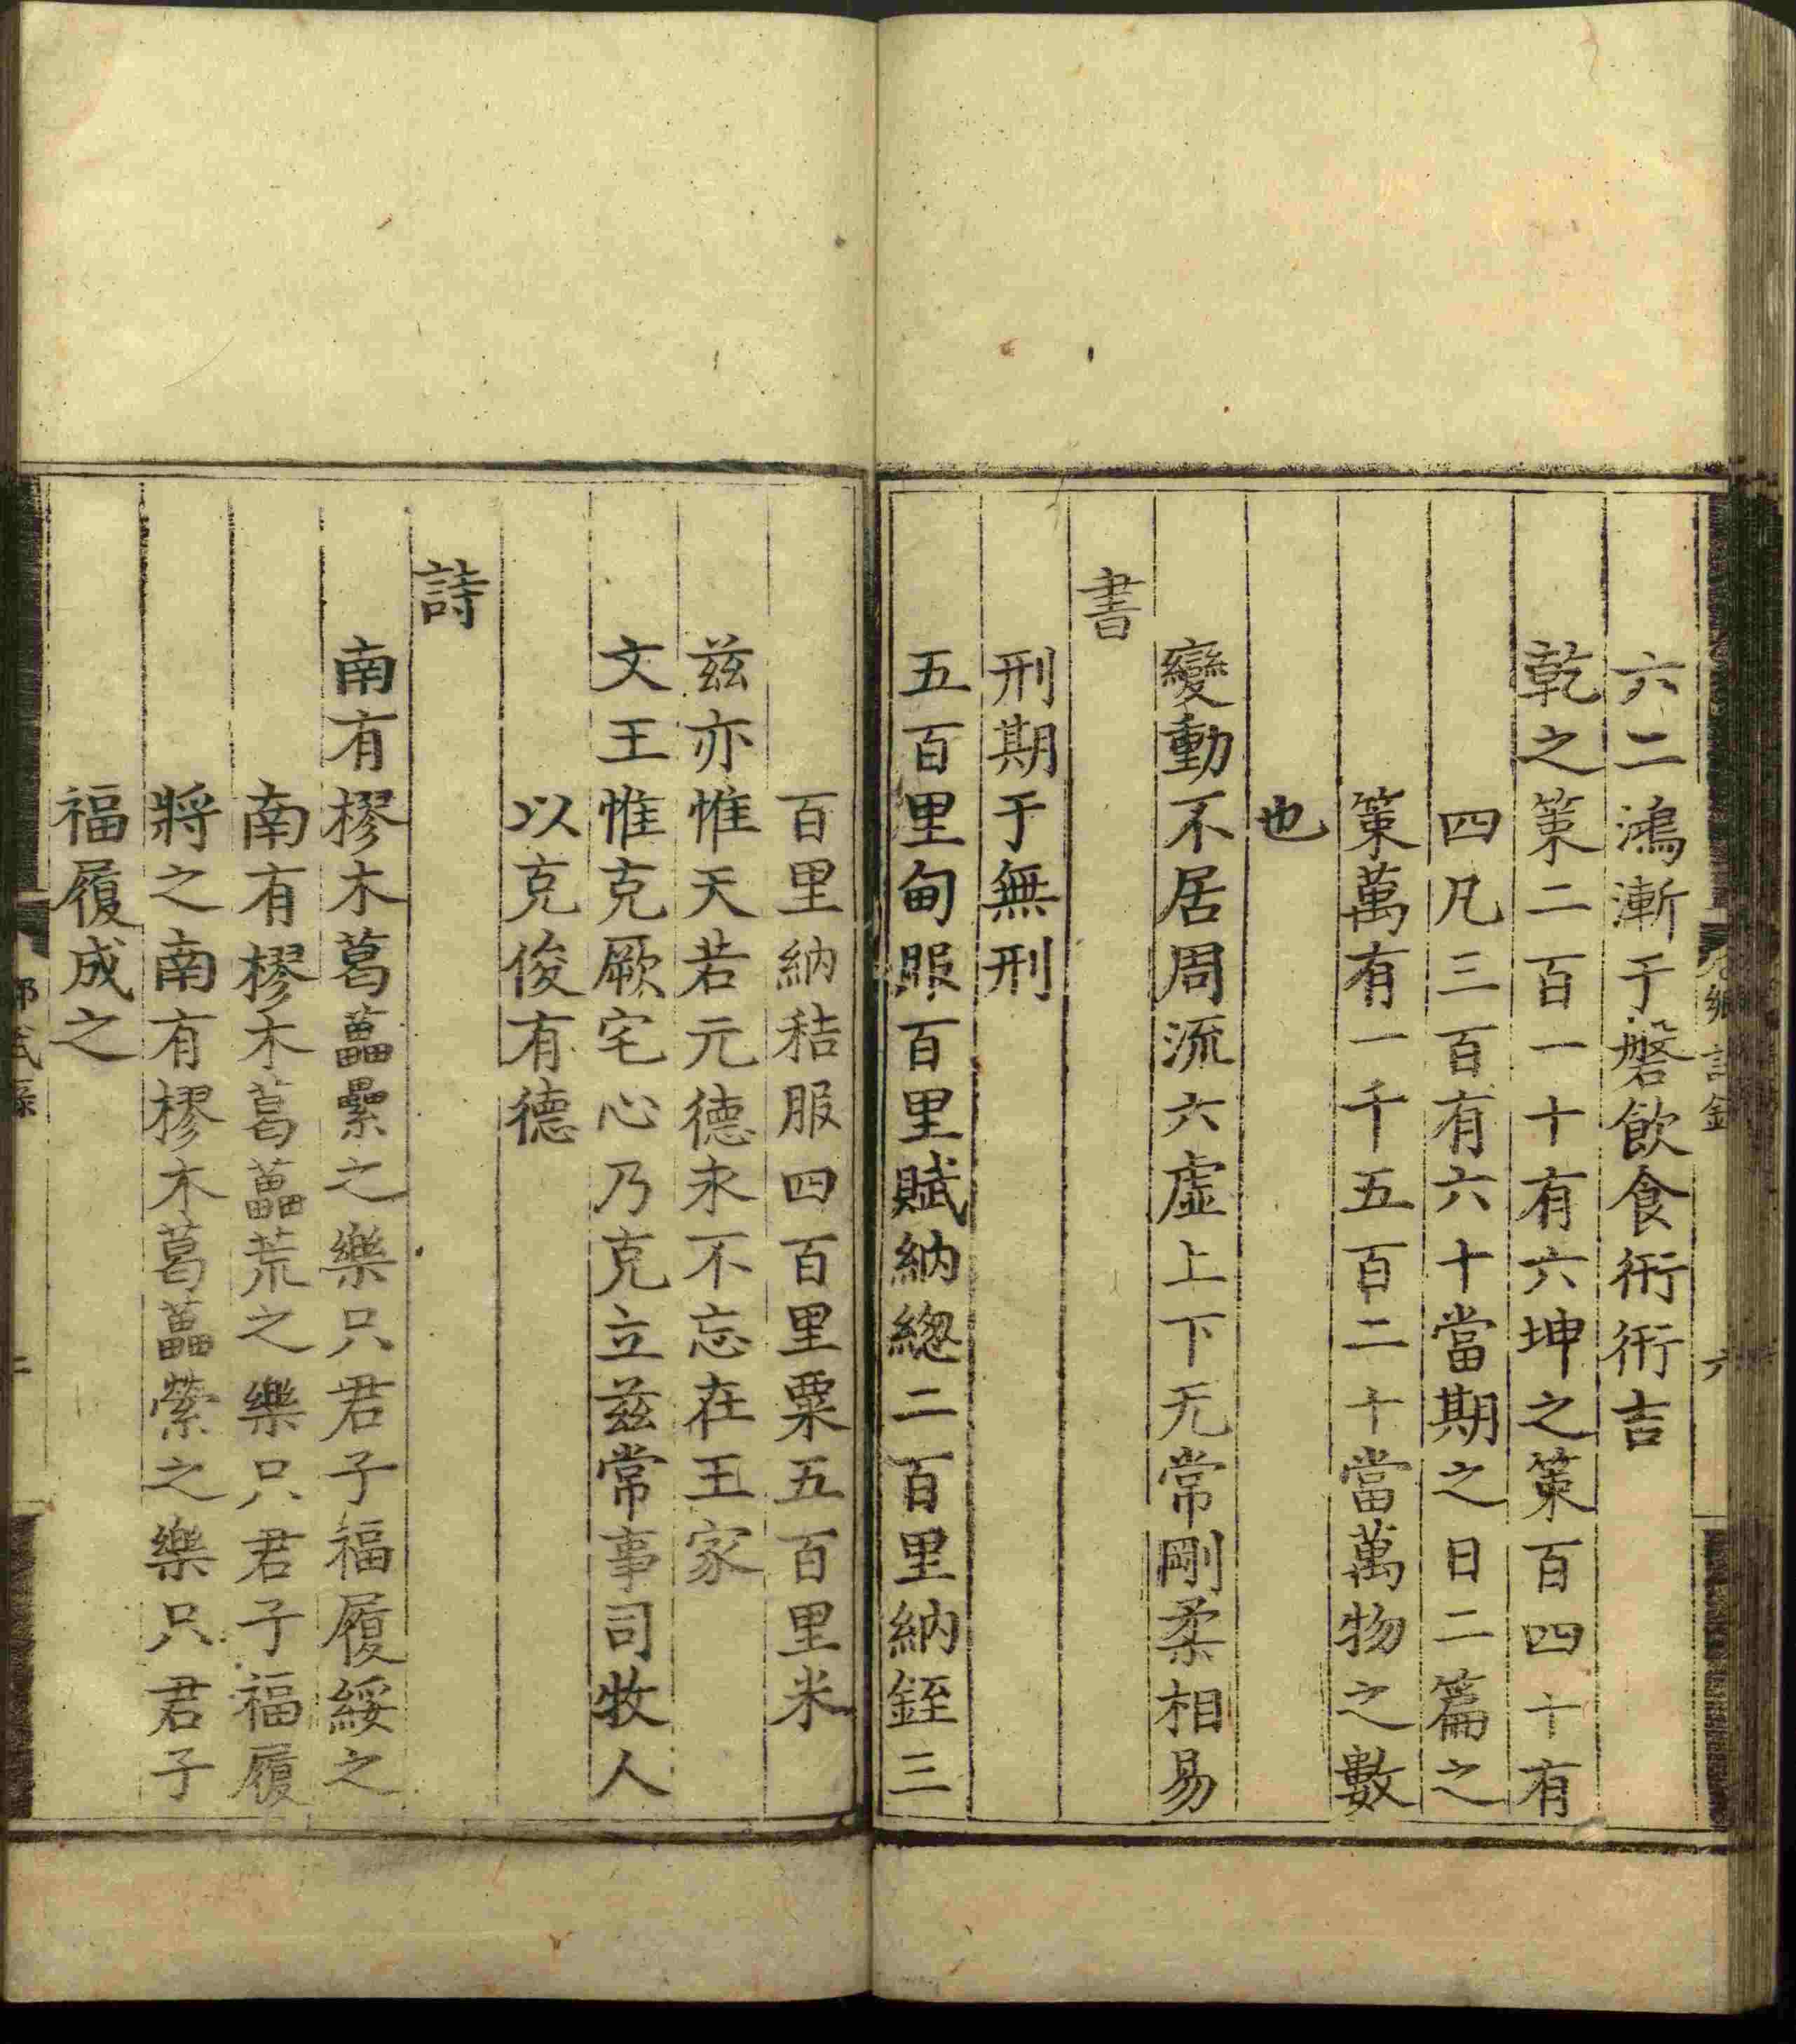 六二鴻漸于磐飲食衎衎吉
乾之策二百一十有六坤之策百四十有
四凡三百有六十當期之日二篇之
策萬有一千五百二十當萬物之數
也
變動不居周流六虛上下无常剛柔相易
書
刑期于無刑
五百里甸服百里賦納緫二百里納銍三
百里納秸服四百里粟五百里米
茲亦惟天若元德永不忘在王家
文王惟克厥宅心乃克立茲常事司牧人
以克俊有德
詩
南有樛木葛藟纍之樂只君子福履綏之
南有樛木葛藟荒之樂只君子福履
將之南有樛木葛藟縈之樂只君子
福履成之